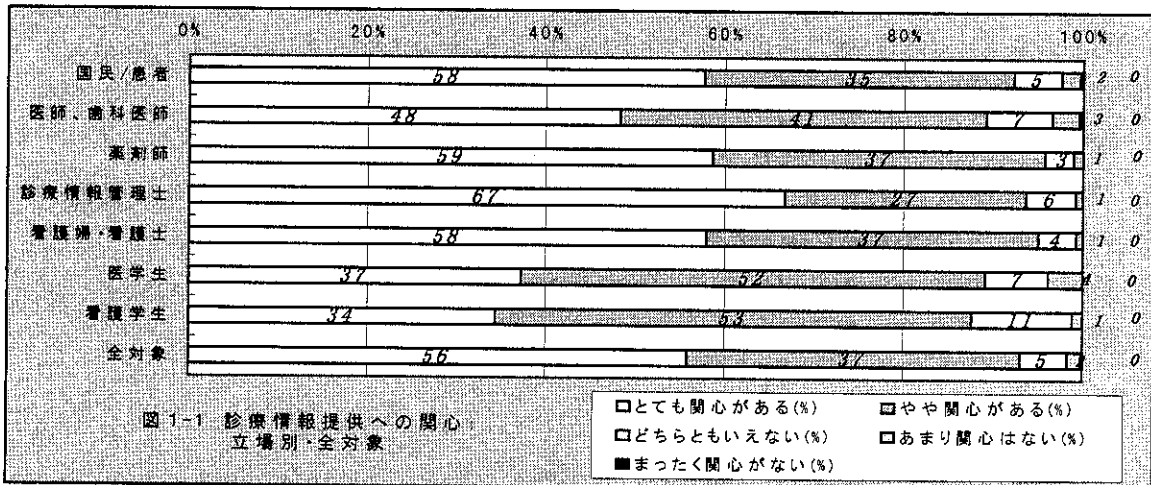 0% 20% 40% 60% 80% 100%
国民/患者 58 35 5 2 0
医師、歯科医師 48 41 7 3 0
薬剤師 59 37 3 1 0
診療情報管理士 67 27 6 1 0
看護婦・看護士 58 37 4 1 0
医学生 37 52 7 4 0
看護学生 34 53 11 1 0
全対象 56 37 5 0
図1-1 診療情報提供への関心
立場別・全対象
とても関心がある(%) やや関心がある(%)
どちらともいえない(%) あまり関心はない(%)
まったく関心がない(%)